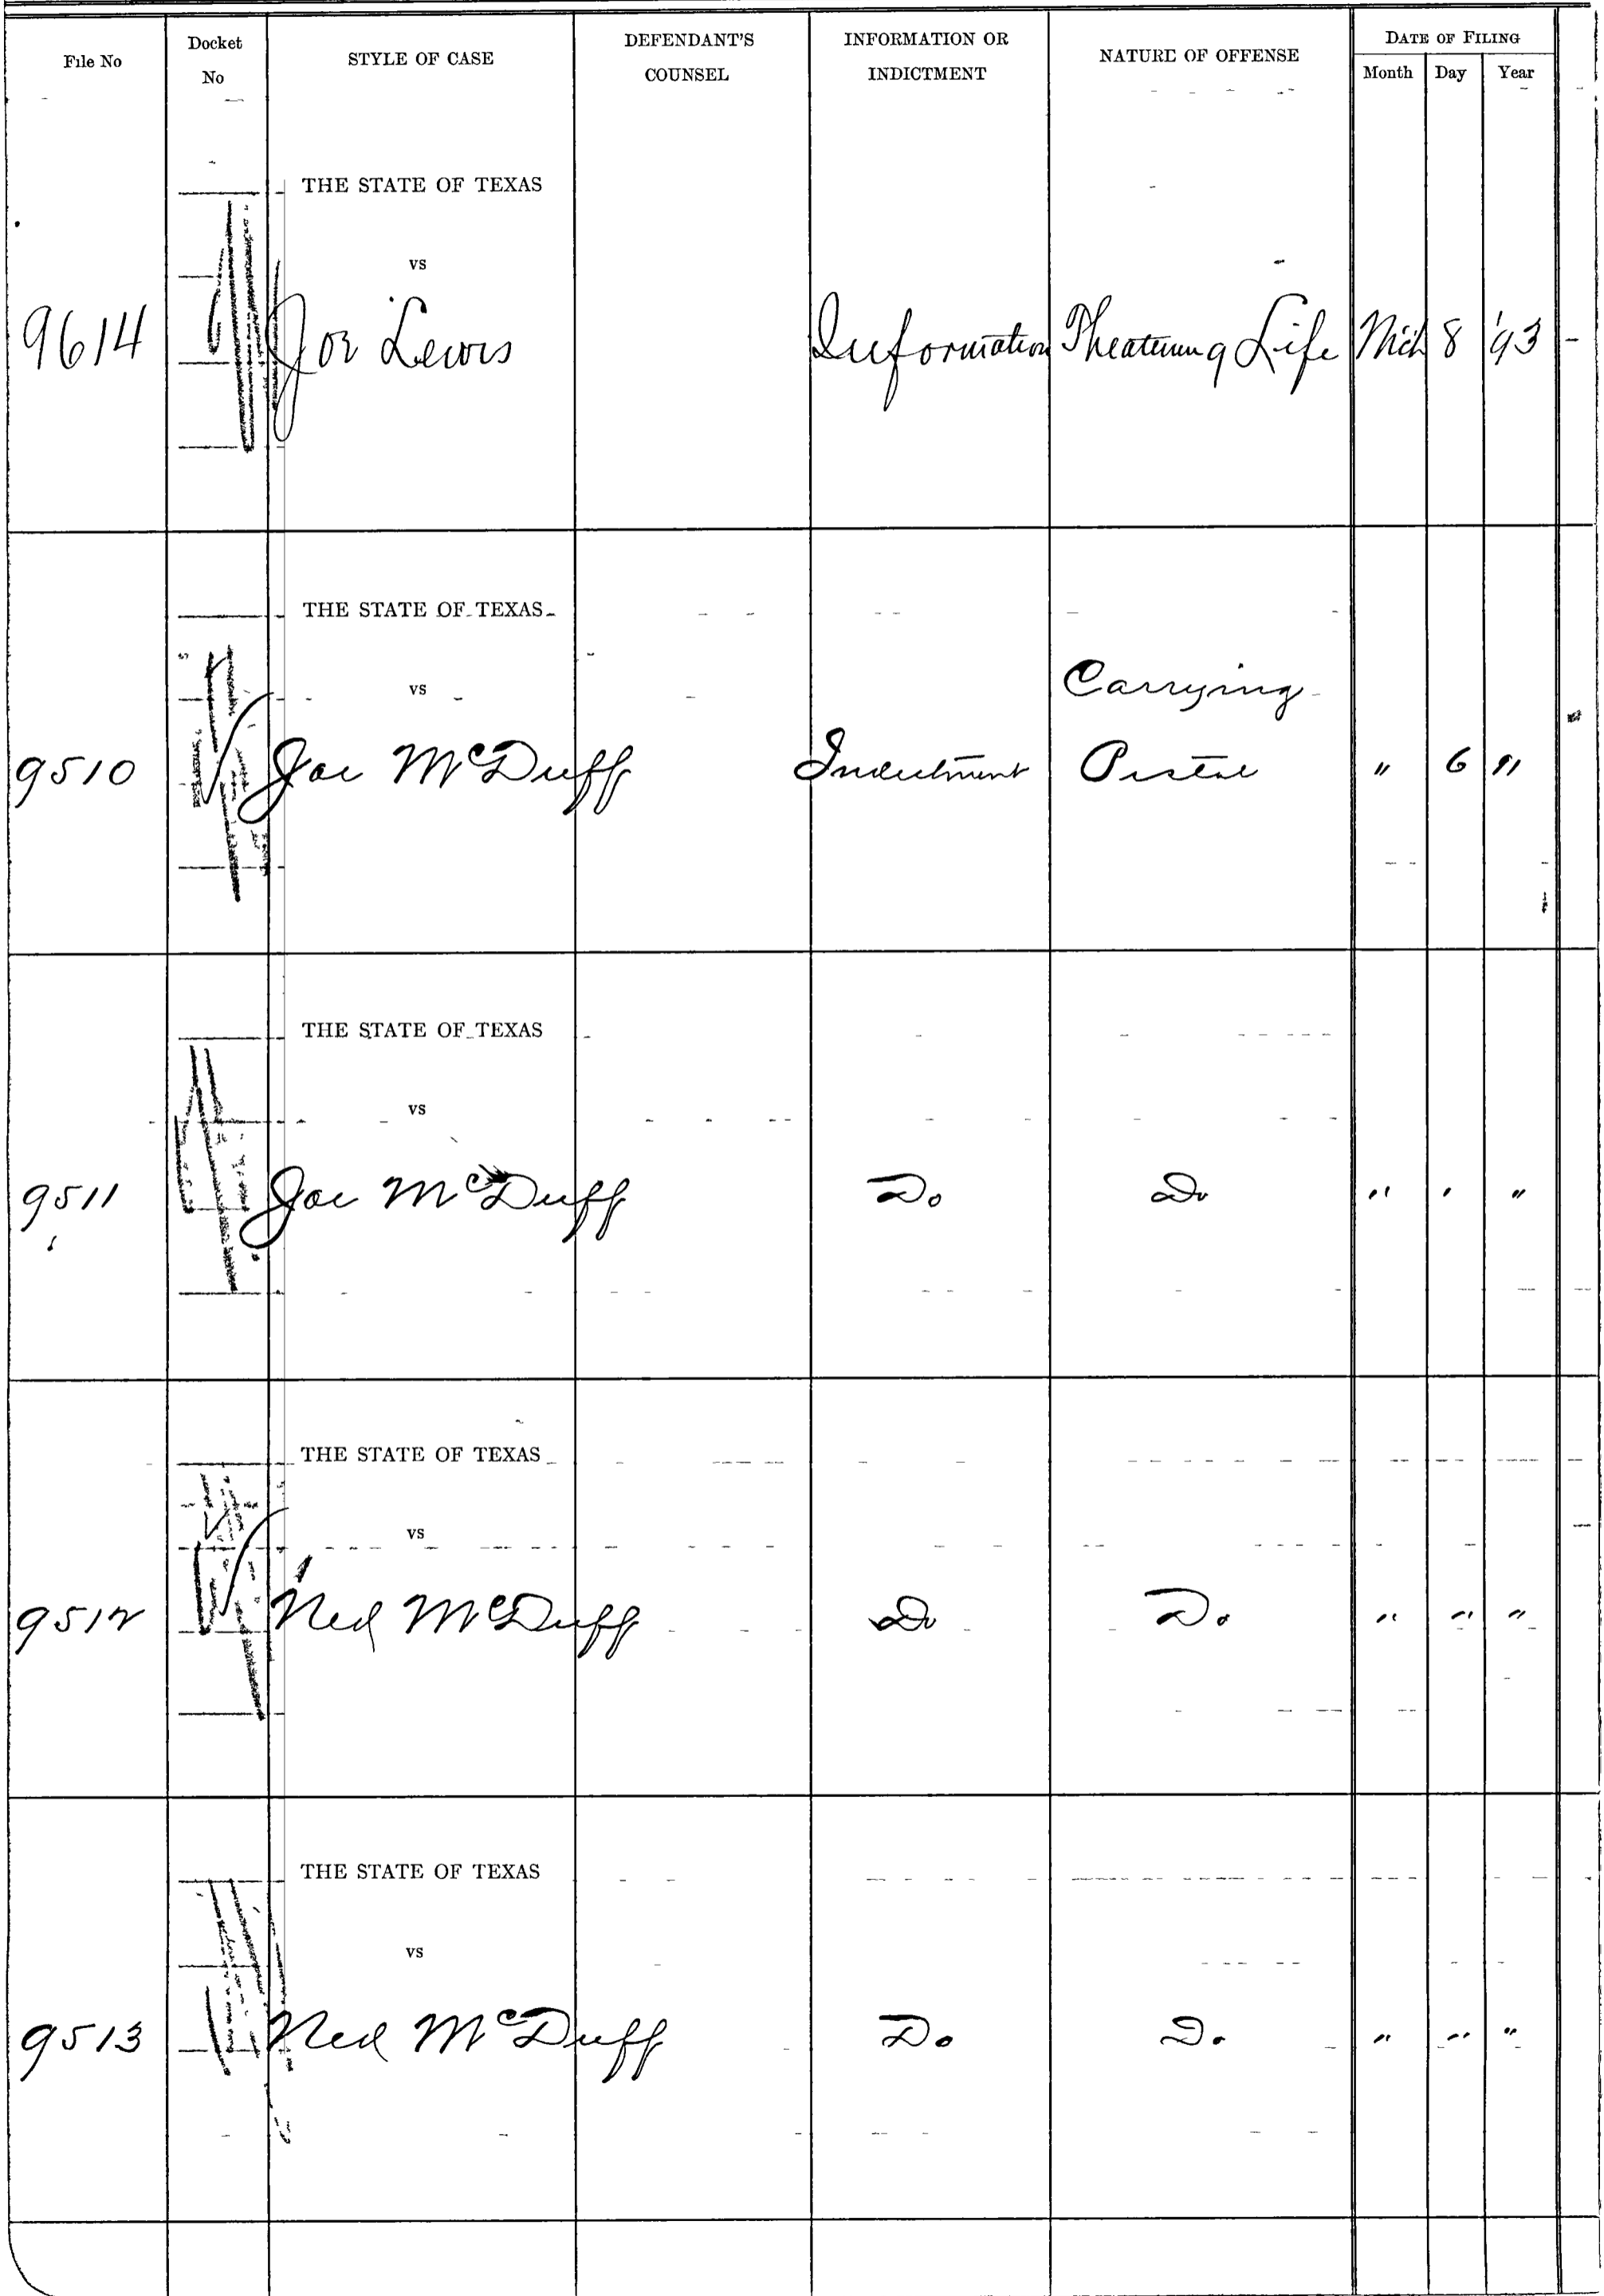 File No
Docket No
STYLE OF CASE
DEFENDANT'S COUNSEL
INFORMATION OR INDICTMENT
NATURE OF OFFENSE
DATE OF FILING
Month Day Year
THE STATE OF TEXAS
vs
9614 Joe Lewis Information Theatening Life Mch 8 '93
THE STATE OF TEXAS
vs
Carrying
9510 Joe McDuff Indictment Pistol " 6 "
THE STATE OF TEXAS
vs
9511 Joe McDuff Do Do " " "
THE STATE OF TEXAS
vs
9512 Ned McDuff Do Do " " "
THE STATE OF TEXAS
vs
9513 Ned McDuff Do Do " " "